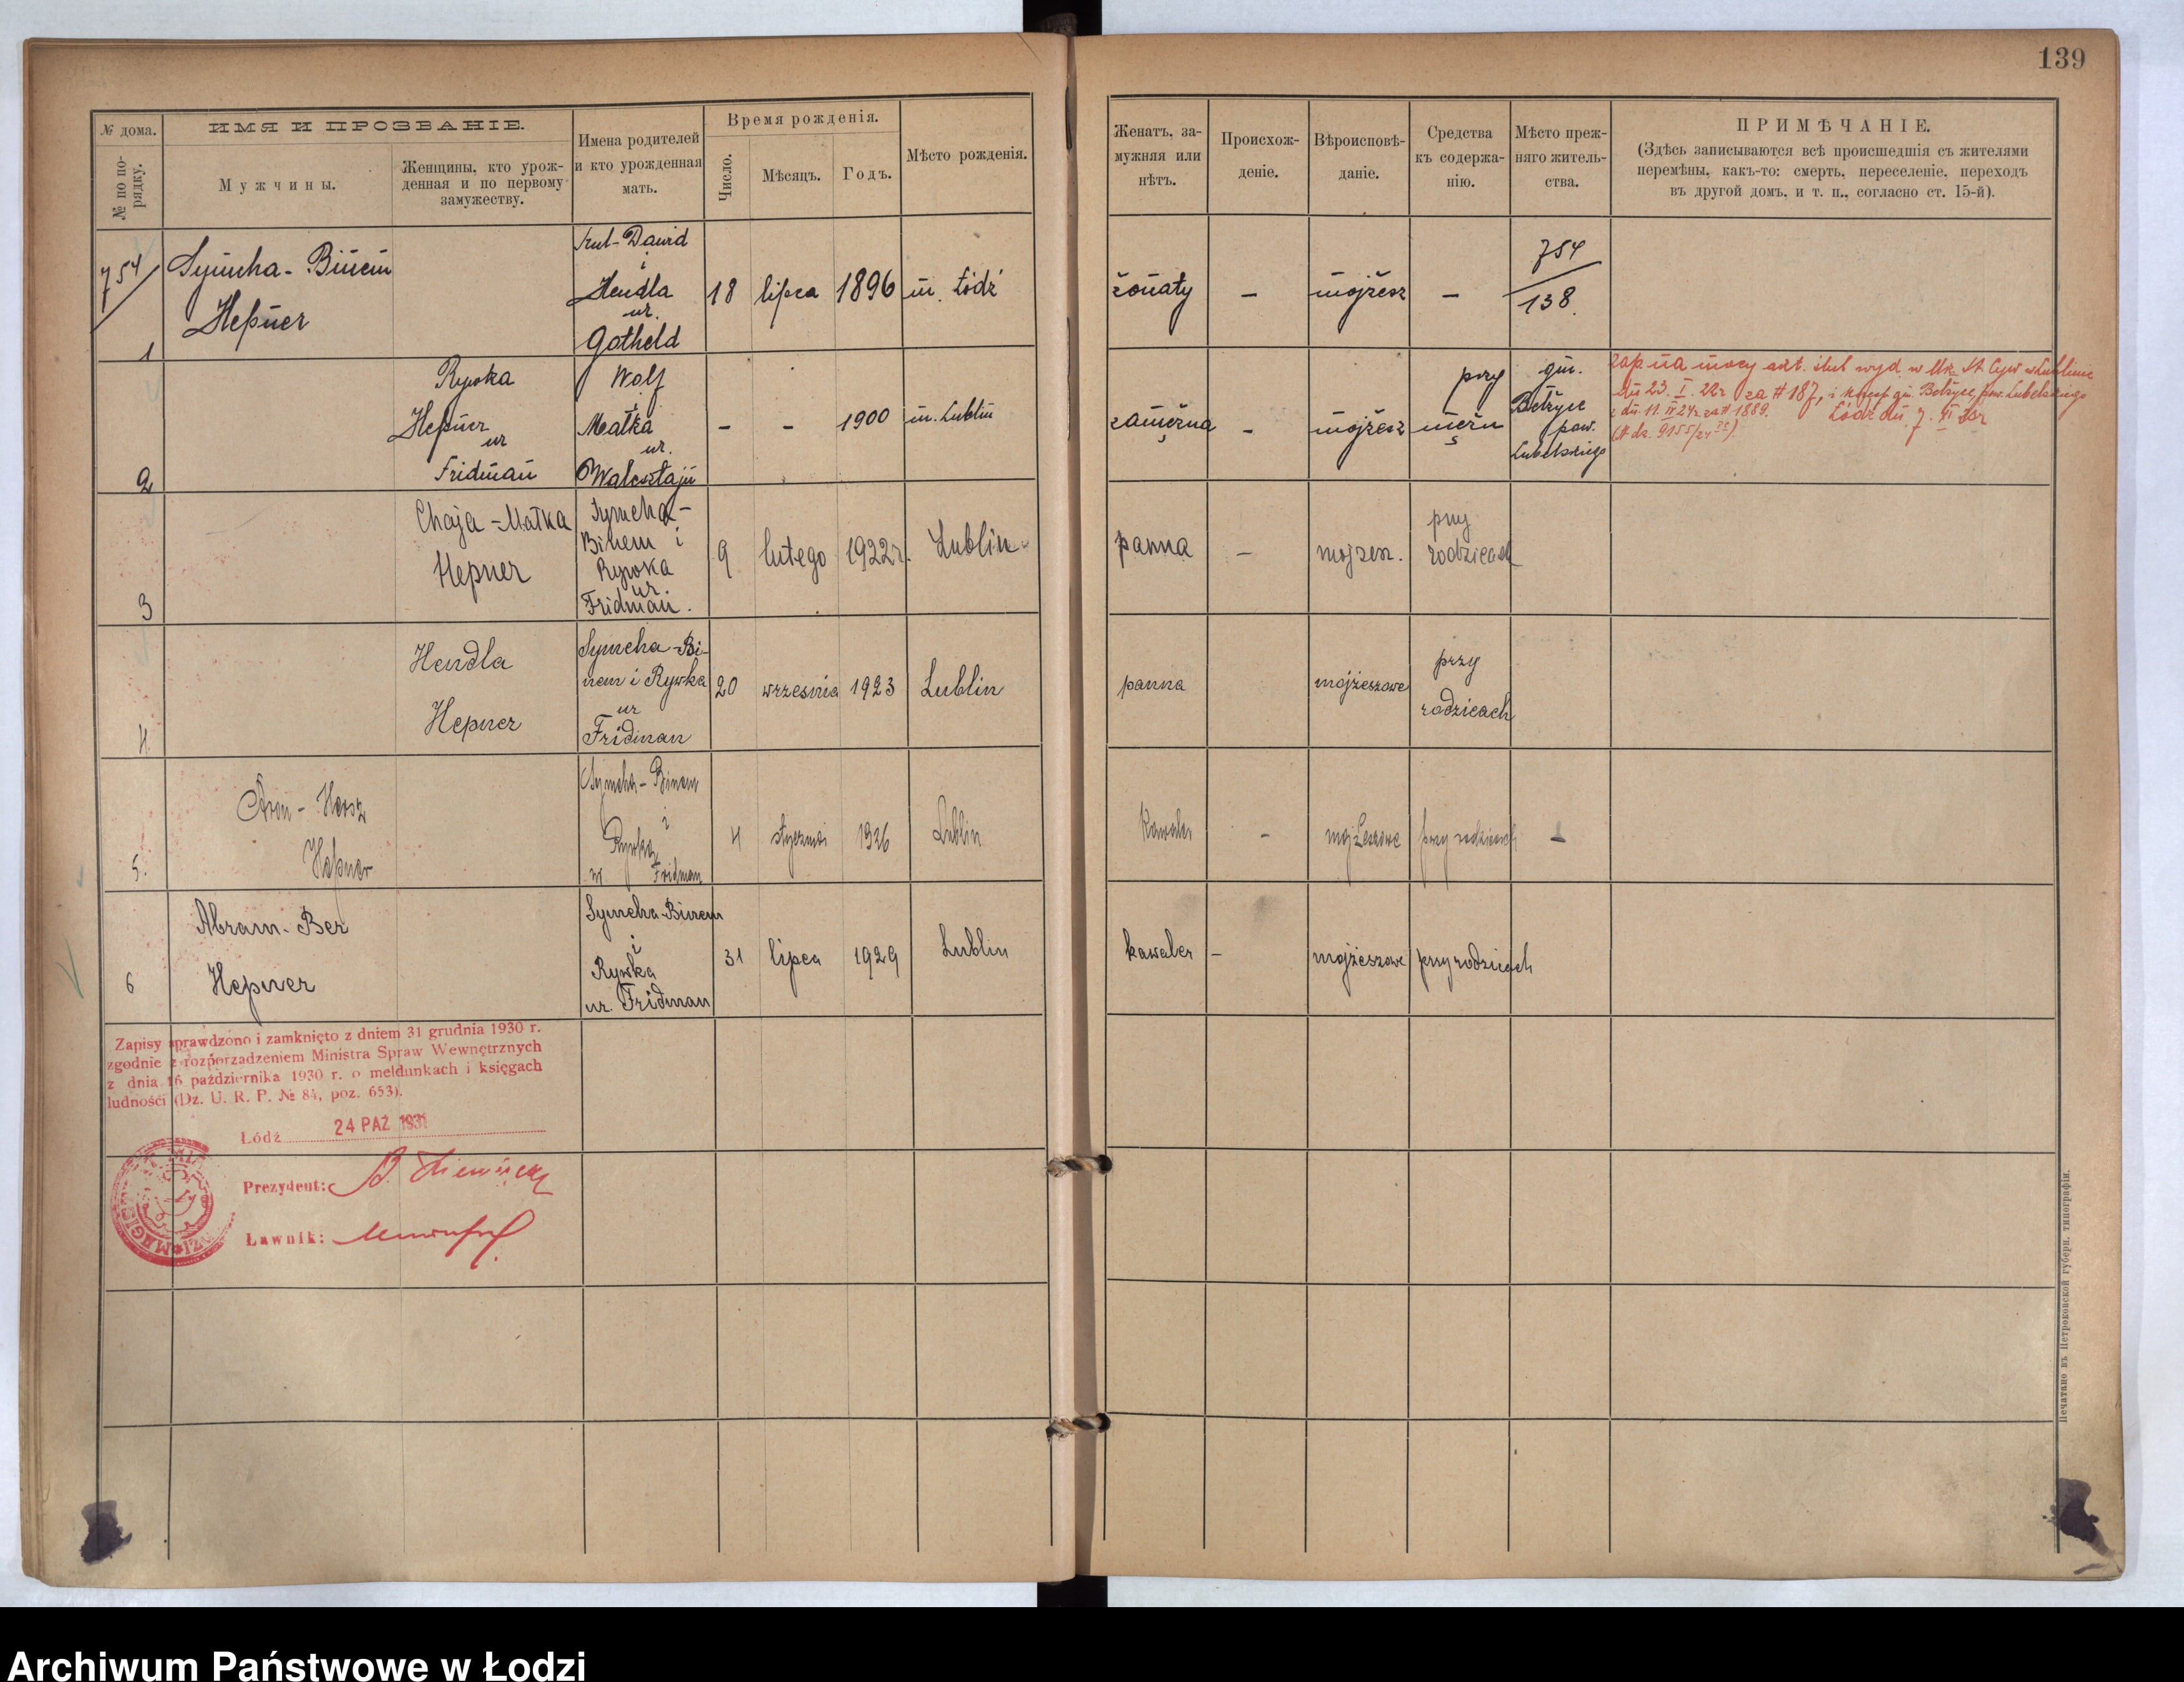 139
№ дома.
№ по порядку.
ИМЯ И ПРОЗВАНІЕ.
Мужчины.
Женщины, кто урож-
денная и по первому
замужеству.
Имена родителей
и кто урожденная
мать.
Время рожденія.
Число.
Мѣсяцъ.
Годъ.
Мѣсто рожденія.
Женатъ, за-
мужняя или
нѣтъ.
Происхож-
деніе.
Вѣроисповѣ-
даніе.
Средства
къ содержа-
нію.
Мѣсто преж-
няго житель-
ства.
ПРИМѢЧАНІЕ.
(Здѣсь записываются всѣ происшедшія съ жителями
перемѣны, какъ-то: смерть, переселеніе, переходъ
въ другой домъ, и т. п., согласно ст. 15-й).
754
1
Symcha-Binem
Hepner
Dawid
i
Hendla
ur.
Gotheld
18
lipca
1896
m. Łódź
żonaty
—
mojżesz
—
754
138.
2
Rywka
Hepner
ur
Fridman
Wolf
i
Małka
ur.
Walcsztajn
-
-
1900
m. Lublin
zamężna
-
mojżesz
przy
mężu
gm.
Bełżyce
pow.
Lubelskiego
zap na mocy akt. ślub wyd. w Urz. St. Cyw w Lublinie
dn 23. I. 22r za # 187, i gm. Bełżyce, pow. Lubelskiego
z dn. 11. 24r za # 1889. Łódź dn. 7. VI
3
Chaja-Małka
Hepner
Symcha-
Binem i
Rywka
ur.
Fridman.
9
lutego
1922r.
Lublin
panna
—
mojżesz.
przy
rodzicach
4
Hendla
Hepner
Symcha-Bi-
nem i Rywka
ur
Fridman
20
września
1923
Lublin
panna
mojżeszowe
przy
rodzicach
5.
Aron-Hersz
Hepner
Symcha-Binem
i
Rywka
ur Fridman
4
stycznia
1926
Lublin
kawaler
-
mojżeszowe
przy rodzicach
-
6
Abram-Ber
Hepner
Symcha-Binem
i
Rywka
ur. Fridman
31
lipca
1929
Lublin
kawaler
-
mojżeszowe
przy rodzicach
Zapisy sprawdzono i zamknięto z dniem 31 grudnia 1930 r.
zgodnie z rozporządzeniem Ministra Spraw Wewnętrznych
z dnia 16 października 1930 r. o meldunkach i księgach
ludności (Dz. U. R. P. № 84, poz. 653).
Łódź 24 PAŹ 1931
Prezydent:
Ławnik:
Печатано въ Петроковской губерн. типографіи.
Archiwum Państwowe w Łodzi